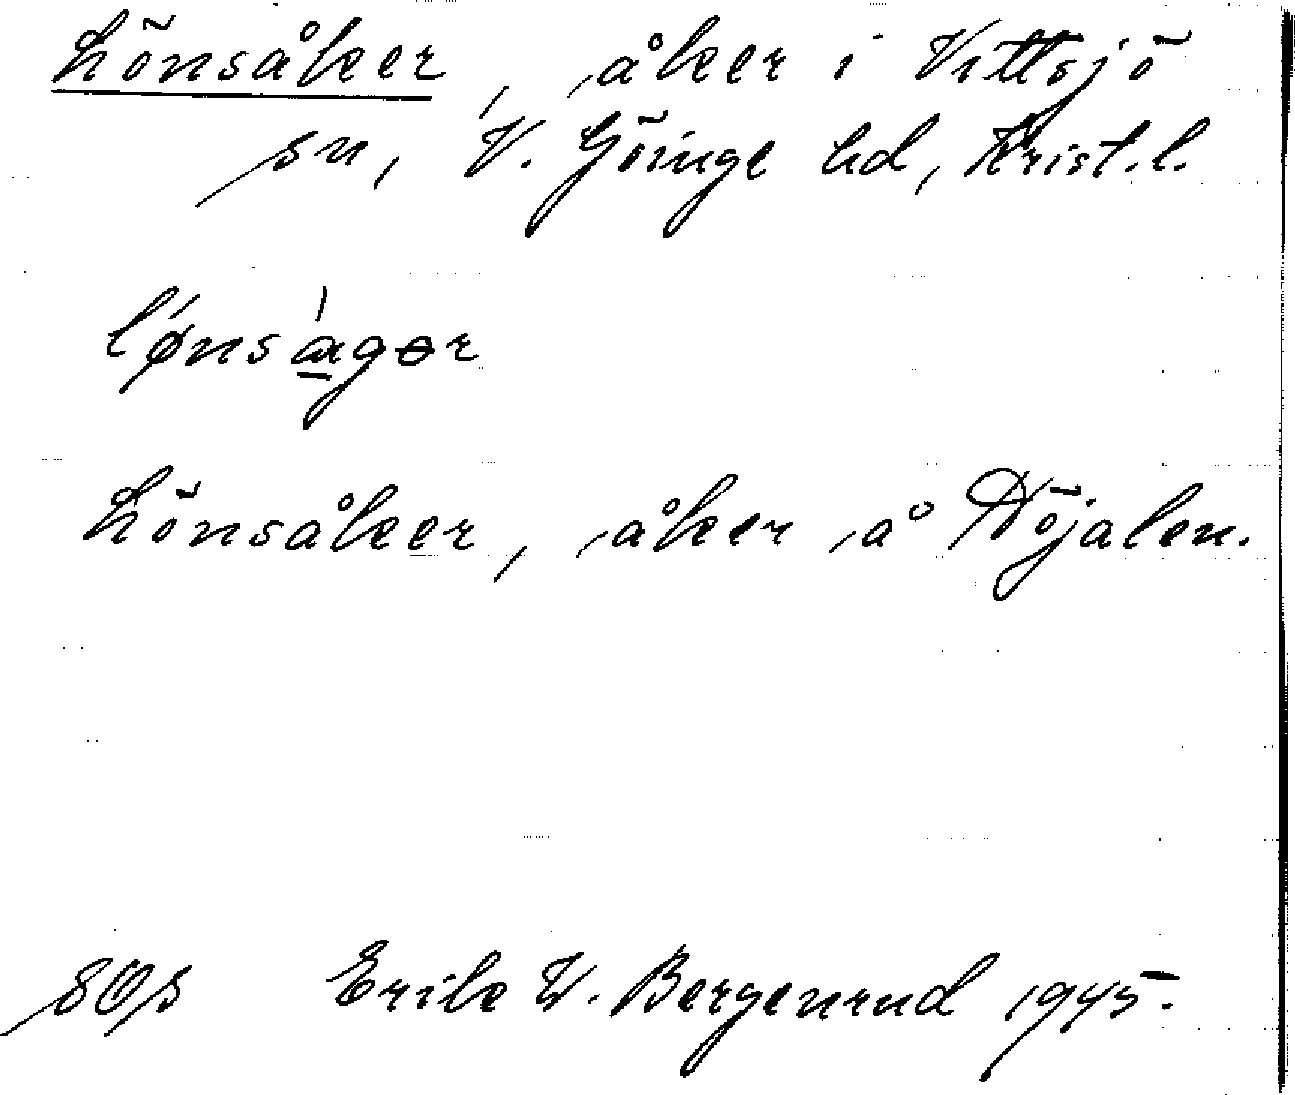 Lönsåker, åker i Vittsjö
sn, V. Göinge hd, Krist. l.
lǿnsá̱gər
Lönsåker, åker å Döjalen.
Erik W. Bergenrud 1945.